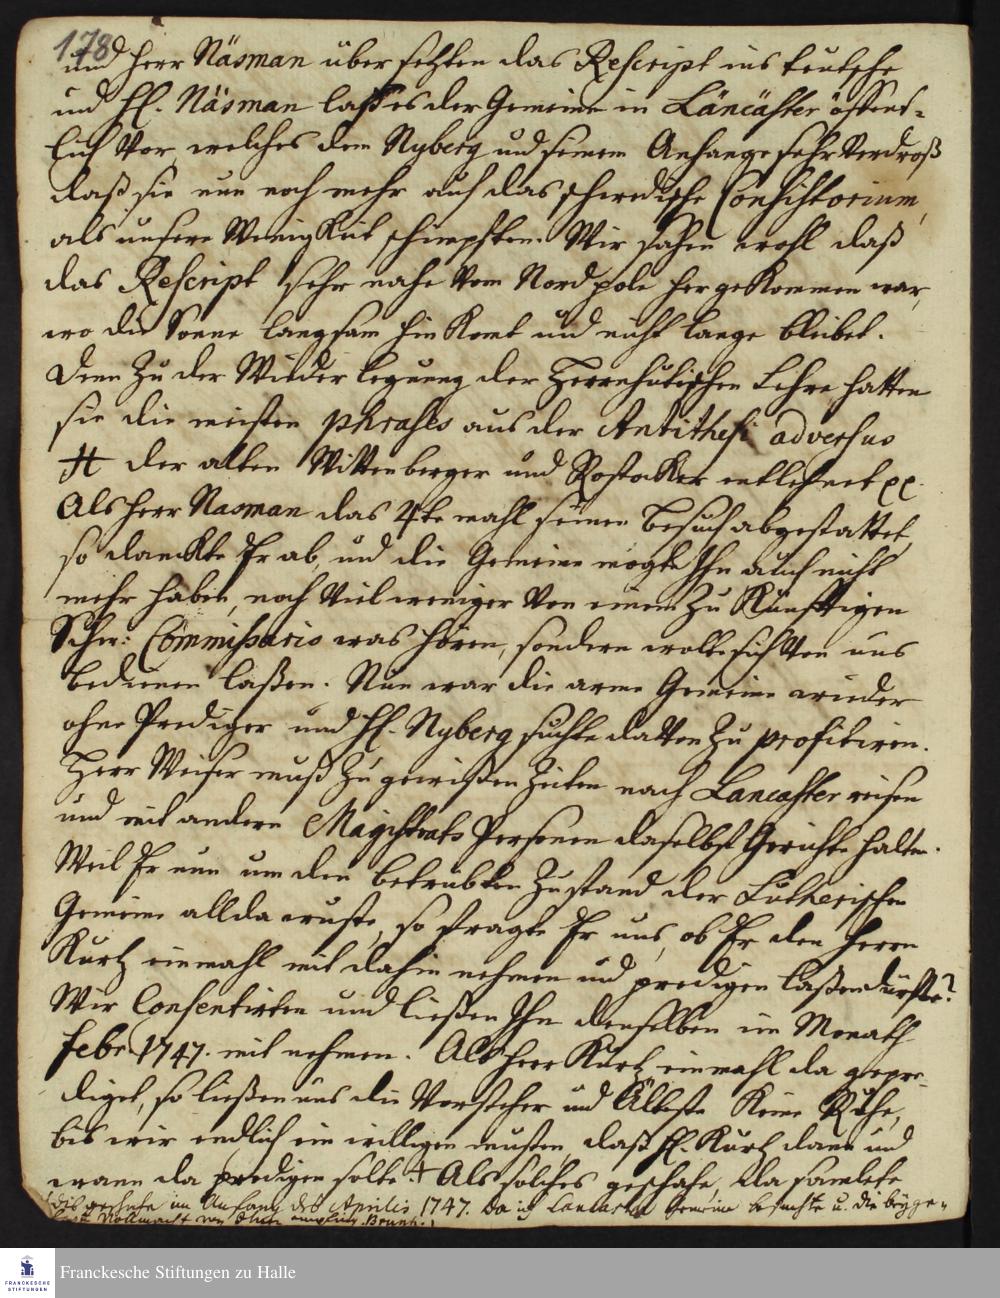 178
und Herr Näsman übersetzten das Rescript ins teutsche
und H. Näsman laß es der Gemeine in Läncäster öffent-
lich Vor, welches dem Nyberg und seinem Anhange sehr verdroß
daß sie nun noch mehr auf das schwedische Consistorium,
als unsere Wenigkeit schimpften. Wir sahen wohl daß
das Rescript sehr nahe vom Nordpole her gekommen war,
wo die Sonne langsam hin komt und nicht lange bleibet.
Denn zu der Wiederlegung der Herrnhutischen Lehre hatten
sie die meisten phrases aus der Antithesi adversus
der alten Wittenberger und Rostocker entlehnet pp.
Als Herr Nasman das 4te mahl seinen Besuch abgestattet,
so danckte Er ab, und die Gemeine mogte Ihn auch nicht
mehr haben, noch Viel weniger Von einem Zu Künfftigen
Schw: Commissario was hören, sondern wolte sich Von uns
bedienen laßen. Nun war die arme Gemeine wieder
ohne Prediger und H. Nyberg suchte davon Zu profitiren.
Herr Weiser muß Zu gewißen Zeiten nach Lancaster reisen
und mit andern Magistrats Personen daselbst Gerichte halten.
Weil Er nun um den betrübten Zustand der Lutherischen
Gemeine allda wuste, so fragte Er uns, ob Er den Herrn
Kurtz einmahl mit dahin nehmen und predigen laßen dürffte?
Wir Consentirten und ließen Ihn denselben im Monath
Febr. 1747. mit nehmen. Als Herr Kurtz einmahl da gepre-
diget, so ließen uns die Vorsteher und Älteste Keine Ruhe,
bis wir endlich ein willigen musten, daß H. Kurtz dann und
wann da predigen solte. + Als solches geschahe, da samlete
dis geschahe im Anfang des Aprilis 1747. da ich Lancaster Gemeine besuchte u. die beyge-
Vollmacht von Ihnen empfing. Brunh.
Franckesche Stiftungen zu Halle
FRANCKESCHE
STIFTUNGEN